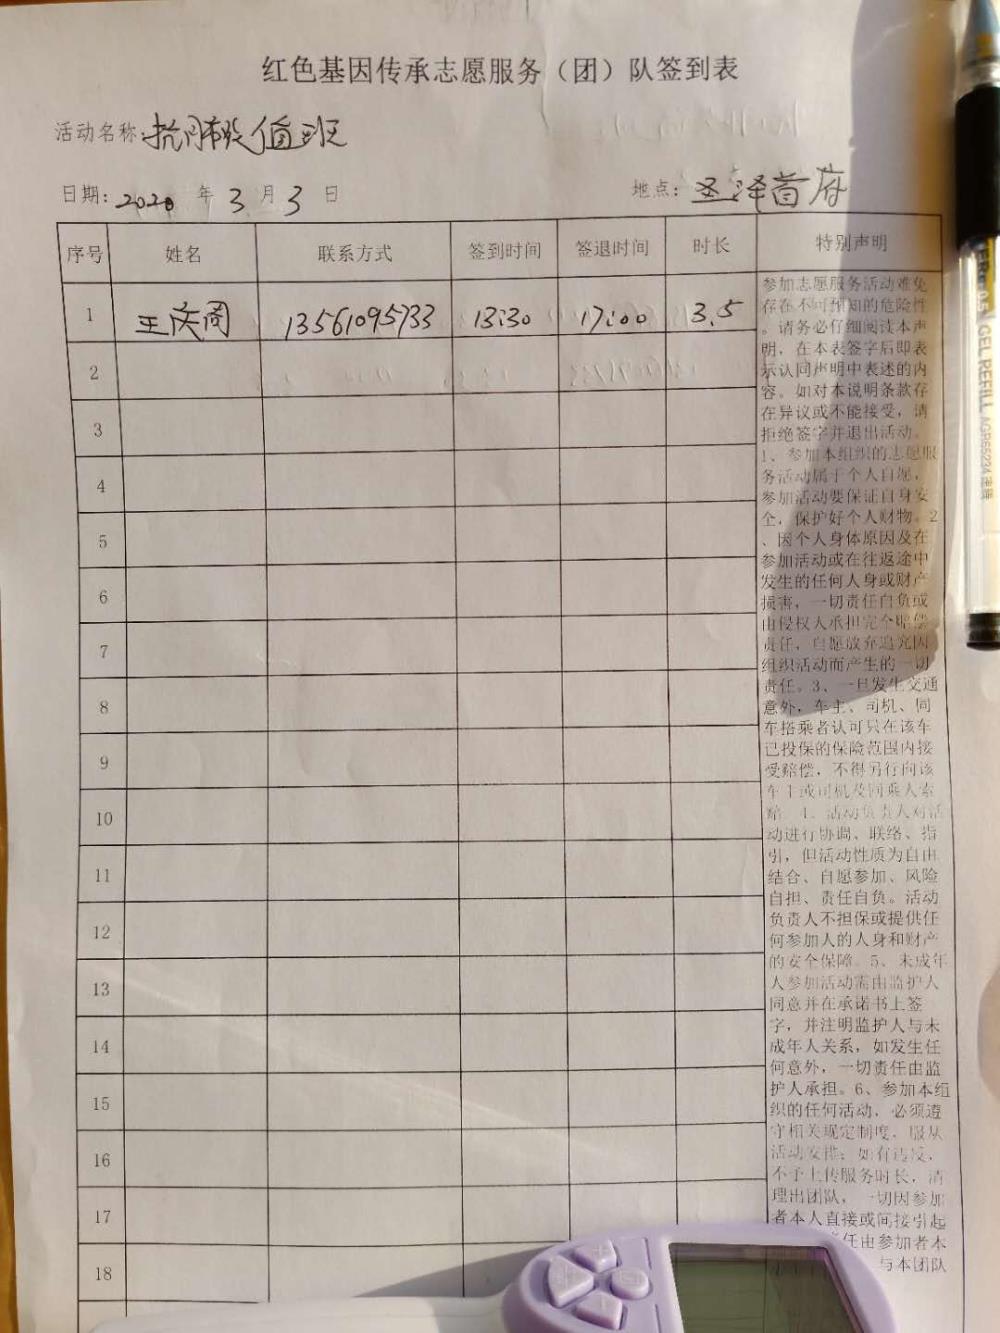 红色基因传承志愿服务（团）队签到表
活动名称: 值班
日期: 2020 年 3 月 3 日 地点: 圣泽首府
序号 姓名 联系方式 签到时间 签退时间 时长 特别声明
1 王庆阁 13561095733 13:30 17:00 3.5
2
3
4
5
6
7
8
9
10
11
12
13
14
15
16
17
18
参加志愿服务活动难免
存在不可预知的危险性
。请务必仔细阅读本声
明，在本表签字后即表
示认同声明中表述的内
容。如对本说明条款存
在异议或不能接受，请
拒绝签字并退出活动。
1、参加本组织的志愿服
务活动属于个人自愿，
参加活动要保证自身安
全，保护好个人财物。2
、因个人身体原因及在
参加活动或在往返途中
发生的任何人身或财产
损害，一切责任自负或
由侵权人承担完全赔偿
责任，自愿放弃追究因
组织活动而产生的一切
责任。3、一旦发生交通
意外，车主、司机、同
车搭乘者认可只在该车
已投保的保险范围内接
受赔偿，不得另行向该
车主或司机及同乘人索
赔。4、活动负责人对活
动进行协调、联络、指
引，但活动性质为自由
结合、自愿参加、风险
自担、责任自负。活动
负责人不担保或提供任
何参加人的人身和财产
的安全保障。5、未成年
人参加活动需由监护人
同意并在承诺书上签
字，并注明监护人与未
成年人关系，如发生任
何意外，一切责任由监
护人承担。6、参加本组
织的任何活动，必须遵
守相关规定制度，服从
活动安排；如有违反，
不予上传服务时长，清
理出团队，一切因参加
者本人直接或间接引起
责任由参加者本
与本团队
0.5 GEL REFILL AGR65234